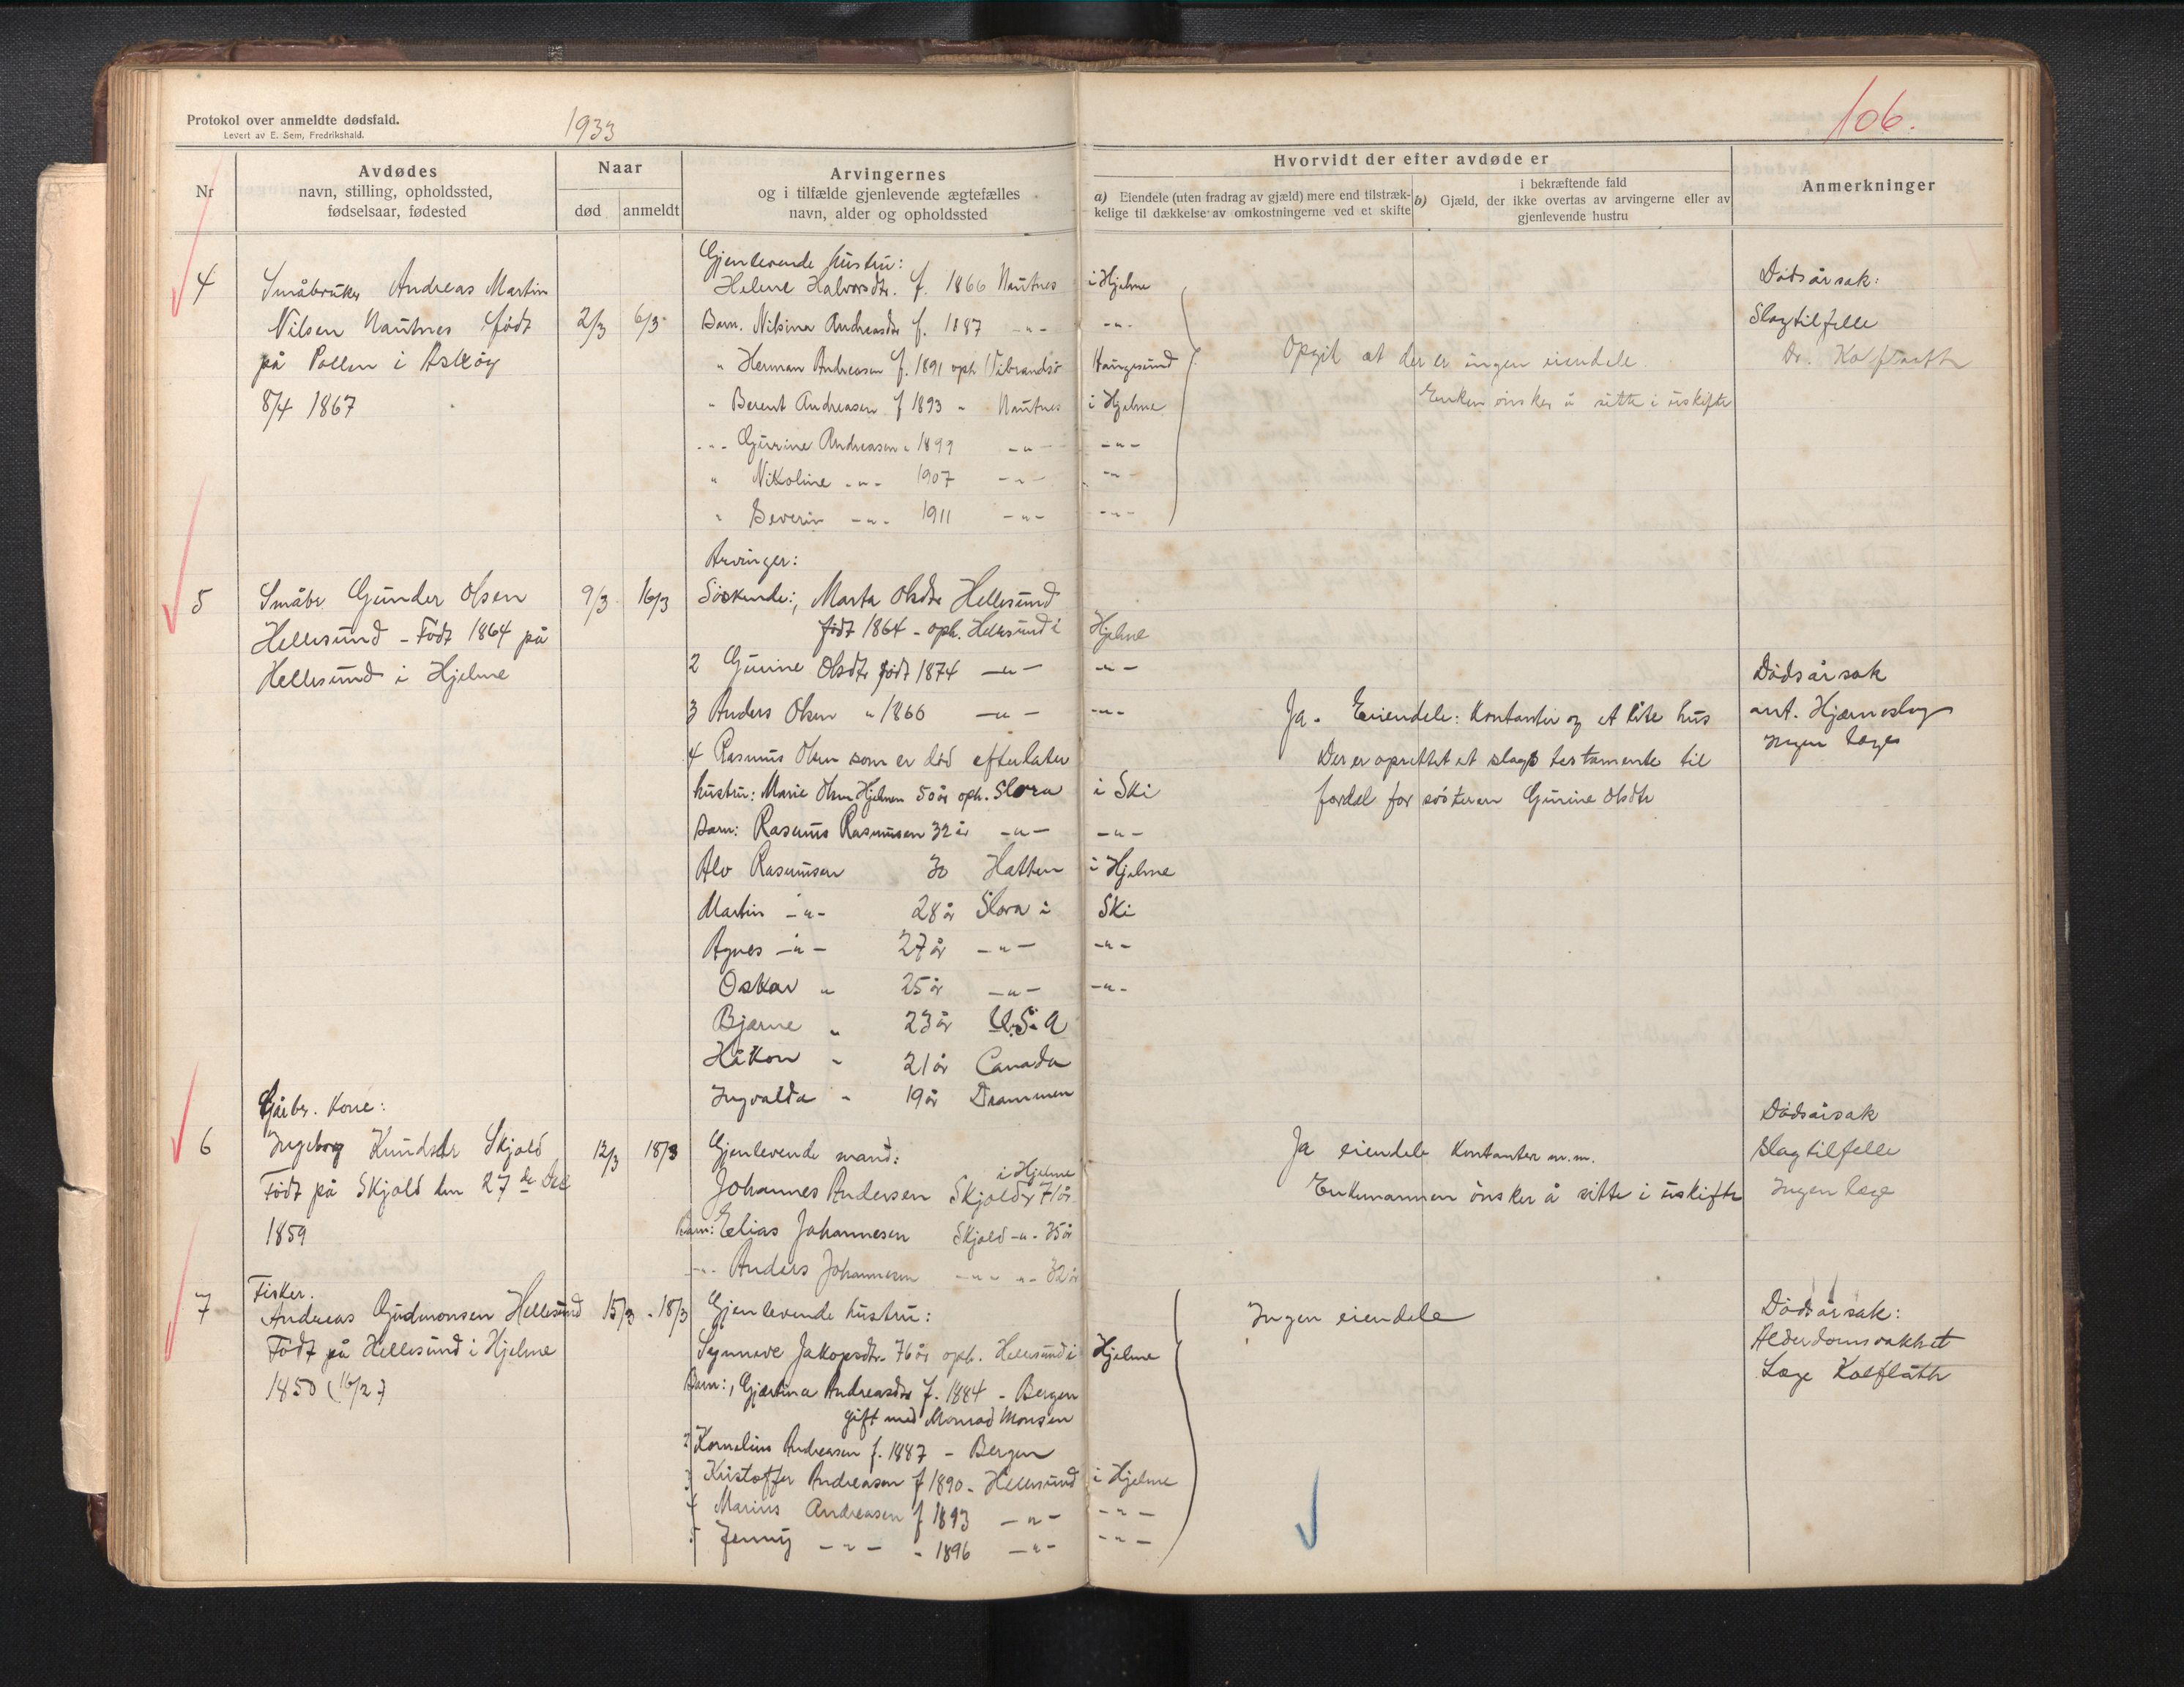 Protokol over anmeldte dødsfald.
Levert av E. Sem, Fredrikshald.
1933
106.
Nr
Avdødes
navn, stilling, opholdssted,
fødselsaar, fødested
Naar
død
anmeldt
Arvingernes
og i tilfælde gjenlevende ægtefælles
navn, alder og opholdssted
Hvorvidt der efter avdøde er
a) Eiendele (uten fradrag av gjæld) mere end tilstræk-
kelige til dækkelse av omkostningerne ved et skifte
i bekræftende fald
b) Gjæld, der ikke overtas av arvingerne eller av
gjenlevende hustru
Anmerkninger
4
Småbruker Andreas Martin
Nilsen Nautnes født
på Pollen i Askøy
8/4 1867
2/3
6/3
Gjenlevende hustru:
Helene Halvorsdtr. f. 1866 Nautnes i Hjelme
Barn. Nilsina Andreasdtr f. 1887 -"- -"-
" Herman Andreasen f. 1891 oph Vibrandsö Haugesund
" Berent Andreasen f 1893 " Nautnes i Hjelme
-"- Gurine Andreasen " 1899 -"- -"-
" Nikoline -"- 1907 -"- -"-
" Severin -"- 1911 -"- -"-
Opgit at der er ingen eiendele
Enken ønsker å sitte i uskifte
Dødsårsak:
Slagtilfelle
Dr. Kalflath
5
Småbr Gunder Olsen
Hellesund - Født 1864 på
Hellesund i Hjelme
9/3
16/3
Arvinger:
Söskende:, Marta Olsdtr Hellesund
født 1864 - oph. Hellesund i Hjelme
2 Gurine Olsdtr født 1874 -"- -"-
3 Anders Olsen " 1866 -"- -"-
4 Rasmus Olsen som er död efterlater
hustru: Marie Olsen Hjelmen 50 år oph. Slora i Ski
Barn: Rasmus Rasmusen 32 år -"- -"-
Alv Rasmusen 30 Hatten i Hjelme
Martin -"- 28 år Slora i Ski
Agnes -"- 27 år -"- -"-
Oskar " 25 år -"- -"-
Bjarne " 23 år U.S.A
Håkon " 21 år Canada
Ingvalda " 19 år Drammen
Ja - Eiendele: Kontanter og et lite hus
Der er oprettet et slags testamente til
fordel for søsteren Gurine Olsdtr
Dødsårsak
ant. Hjerneslag
Ingen læge
6
Gårbr. Kone:
Ingeborg Knudsdtr Skjold
Født på Skjold den 27de
1859
12/3
18/3
Gjenlevende mand:
i Hjelme
Johannes Andersen Skjold 71 år
Barn: Elias Johannesen Skjold -"- 35 år
-"- Anders Johannesen -"- -"- 32 år
Ja eiendele Kontanter m.m.
Enkemannen ønsker å sitte i uskifte
Dödsårsak
Slagtilfelle
Ingen læge
7
Fisker.
Andreas Gudmonsen Hellesund
Født på Hellesund i Hjelme
1850 (16/2)
15/3
18/3
Gjenlevende hustru:
Synneve Jakopsdtr. 76 år oph. Hellesund i Hjelme
Barn:, Gjertina Andreasdtr f. 1884 - Bergen
gift med Monrad Monsen
2 Kornelius Andreasen f. 1887 - Bergen
3 Kristoffer Andreasen f 1890 - Hellesund i Hjelme
4 Marius Andreasen f 1893 -"- -"-
5 Jenny -"- " 1896 -"- -"-
Ingen eiendele
Dødsårsak:
Alderdomsvakhet
Læge Kalflath